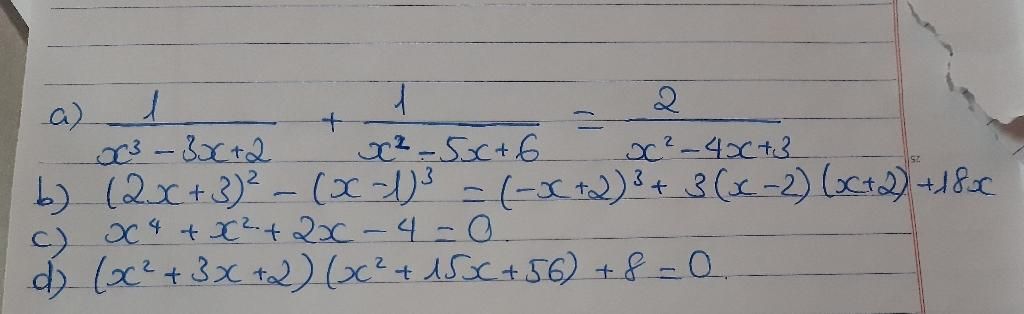 a) 1/(x³ - 3x+2) + 1/(x² - 5x+6) = 2/(x² - 4x+3)
b) (2x+3)² - (x-1)³ = (-x+2)³ + 3(x-2)(x+2) +18x
c) x⁴ + x² + 2x - 4 = 0.
d) (x² + 3x+2)(x² + 15x+56) + 8 = 0.